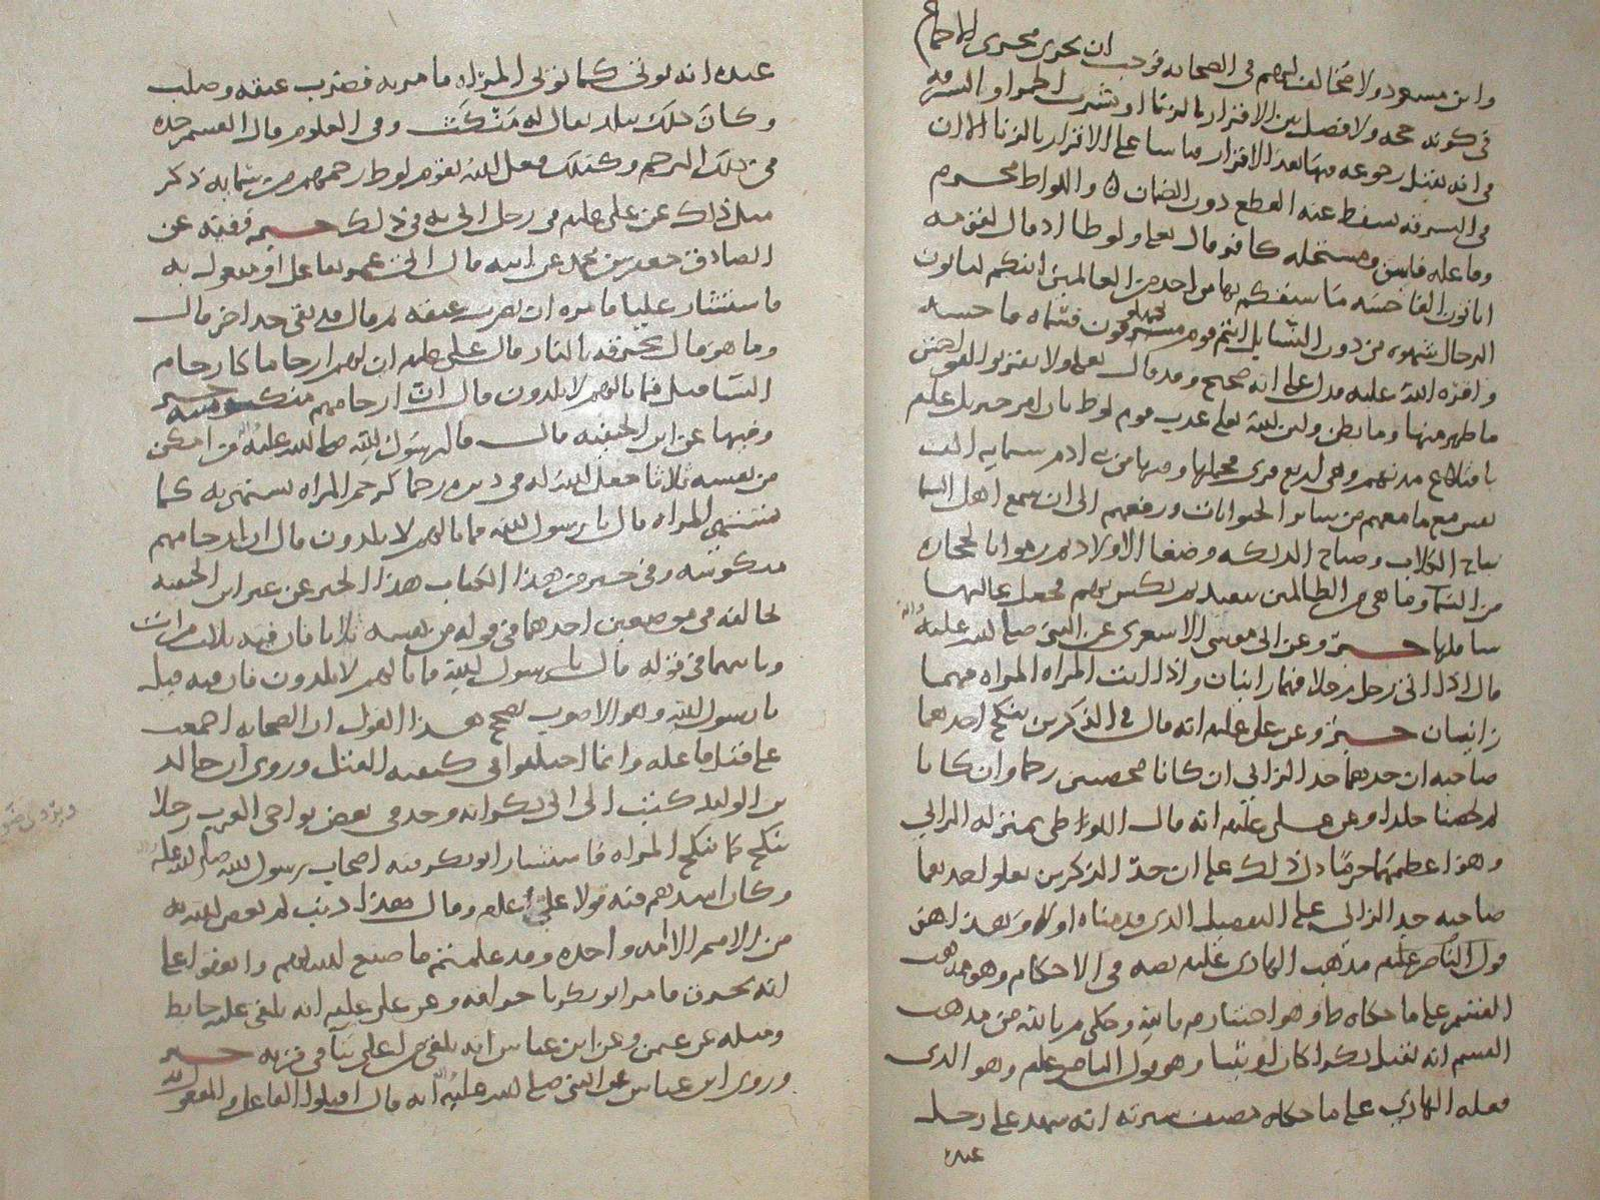 وابن مسعود ولا مخالف لهم في الصحابة فوجب ان يجري مجرى الاجماع
في كونه حجه ولا فصل بين الاقرار بالزنا او بشرب الخمر او السرقه
في انه يقبل رجوعه فيها بعد الاقرار قياسا على الاقرار بالزنا الا ان
في السرقه يسقط عنه القطع دون الضمان ۞ واللواط محرم
وفاعله فاسق ومستحله كافر قال تعالى ولوطا اذ قال لقومه
اتاتون الفاحشه ما سبقكم بها من احد من العالمين انكم لتاتون
الرجال شهوه من دون النساء بل انتم قوم مسرفون فسماه فاحشه
واقره الله عليه فدل على انه صحيح وقد قال تعالى ولا تقربوا الفواحش
ما ظهر منها وما بطن ولان الله تعالى عذب قوم لوط بان امر جبريل عليلم
باقتلاع مدنهم وهي اربع قرى فحملها وفيها من بني ادم ستمايه الف
نفس مع ما معهم من سائر الحيوانات ورفعهم الى ان سمع اهل السما
نباح الكلاب وصياح الديكه وضغا الاولاد ثم رموا بالحجاره
من السما وما هي من الظالمين ببعيد ثم نكس بهم فجعل عاليها
سافلها خبر وعن ابي موسى الاشعري عن النبي صلى الله عليه واله
قال اذا اتى رجل رجلا فهما زانيان واذا اتت المراه المراه فهما
زانيتان خبر وعن علي عليلم انه قال في الذكرين ينكح احدهما
صاحبه ان حدهما حد الزاني ان كانا محصنين رجما وان كانا
لم يحصنا جلدا وعن علي عليلم انه قال اللواطي بمنزله الزاني
وهو اعظمهما جرما دل ذلك على ان حد الذكرين يعلو احدهما
صاحبه حد الزاني على التفصيل الذي قدمناه اولا وهذا هو
قول الناصر عليلم مذهب الهادي عليلم نصه في الاحكام وهو مذهب
القسم على ما حكاه ط وهو اختيار م بالله وحكى م بالله من مذهب
القسم انه يقتل بكرا كان او ثيبا وهو قول الناصر عليلم وهو الذي
فعله الهادي على ما حكاه مصنف سيرته انه شهد على رجل
عنده
عنده انه يوتى كما توتى المراه فامر به فضرب عنقه وصلب
وكان ذلك ببلد يقال له متكث وفي العلوم قال القسم حده
في ذلك الرجم وكذلك فعل الله بقوم لوط رجمهم من سمايه ذكر
مثل ذلك عن علي عليلم في رجل اتي به في ذلك خبر وفيه عن
الصادق جعفر بن محمد عن ابيه قال اتي عمر بفاعل او مفعول به
فاستشار عليا فامره ان يضرب عنقه ثم قال قد بقي حد اخر قال
وما هو قال يحرقه بالنار قال علي عليلم ان لهم ارحاما كارحام
النسا قيل فما بالهم لا يلدون قال ان ارحامهم منكوسه خبر
وفيها عن ابن الحنفيه قال قال رسول الله صلى الله عليه واله من امكن
من نفسه ثلاثا جعل الله له في دبره رحما كرحم المراه يشتهي به كما
تشتهي المراه قال يا رسول الله فما بالهم لا يلدون قال ان ارحامهم
منكوسه وفي خبر من هذا الكتاب هذا الخبر عن غير ابن الحنفيه
يخالفه في موضعين احدهما في قوله من نفسه ثلاثا فان فيه ثلاث مرات
وثانيهما في قوله قال يا رسول الله فما بالهم لا يلدون فان فيه قيل
يا رسول الله وهو الاصوب يصحح هذا القول ان الصحابه اجمعت
على قتل فاعله وانما اختلفوا في كيفيه القتل وروي ان خالد
بن الوليد كتب الى ابي بكر انه وجد في بعض نواحي العرب رجلا
ينكح كما تنكح المراه فاستشار ابو بكر فيه اصحاب رسول الله صلى الله عليه
وكان اشدهم فيه قولا علي عليلم وقال هذا ذنب لم يعص الله به
من الامم الا امه واحده وقد علمتم ما صنع الله بهم واتفقوا على
انه يحرق فامر ابو بكر باحراقه وعن علي عليلم انه يلقى عليه حايط
ومثله عن عمر وعن ابن عباس انه يلقى من اعلى بنا في قريه خبر
وروى ابن عباس عن النبي صلى الله عليه واله انه قال اقتلوا الفاعل والمفعول به